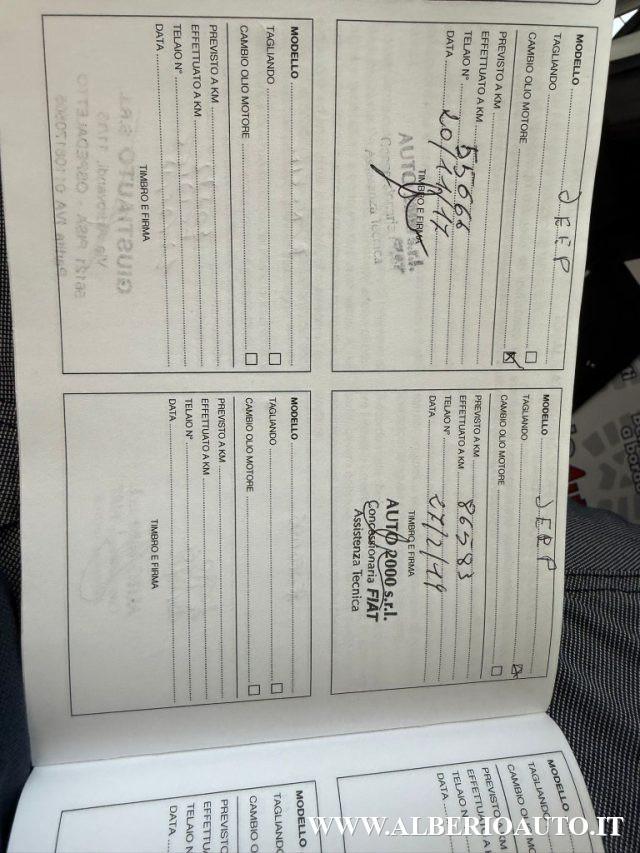 MODELLO JEEP
TAGLIANDO
CAMBIO OLIO MOTORE
PREVISTO A KM
EFFETTUATO A KM 55066
TELAIO N°
DATA 20/11/17
TIMBRO E FIRMA
AUTO s.r.l.
Concessionaria FIAT
Assistenza Tecnica
MODELLO JEEP
TAGLIANDO
CAMBIO OLIO MOTORE
PREVISTO A KM
EFFETTUATO A KM 86583
TELAIO N°
DATA 27/2/19
TIMBRO E FIRMA
AUTO 2000 s.r.l.
Concessionaria FIAT
Assistenza Tecnica
MODELLO
TAGLIANDO
CAMBIO OLIO MOTORE
PREVISTO A KM
EFFETTUATO A KM
TELAIO N°
DATA
TIMBRO E FIRMA
MODELLO
TAGLIANDO
CAMBIO OLIO MOTORE
PREVISTO A KM
EFFETTUATO A KM
TELAIO N°
DATA
TIMBRO E FIRMA
MODELLO
TAGLIANDO
CAMBIO OLIO
PREVISTO A KM
EFFETTUATO
TELAIO N
DATA
MODELLO
TAGLIANDO
CAMBIO OLIO
PREVISTO
EFFETTUATO
TELAIO N
DATA
WWW.ALBERIOAUTO.IT